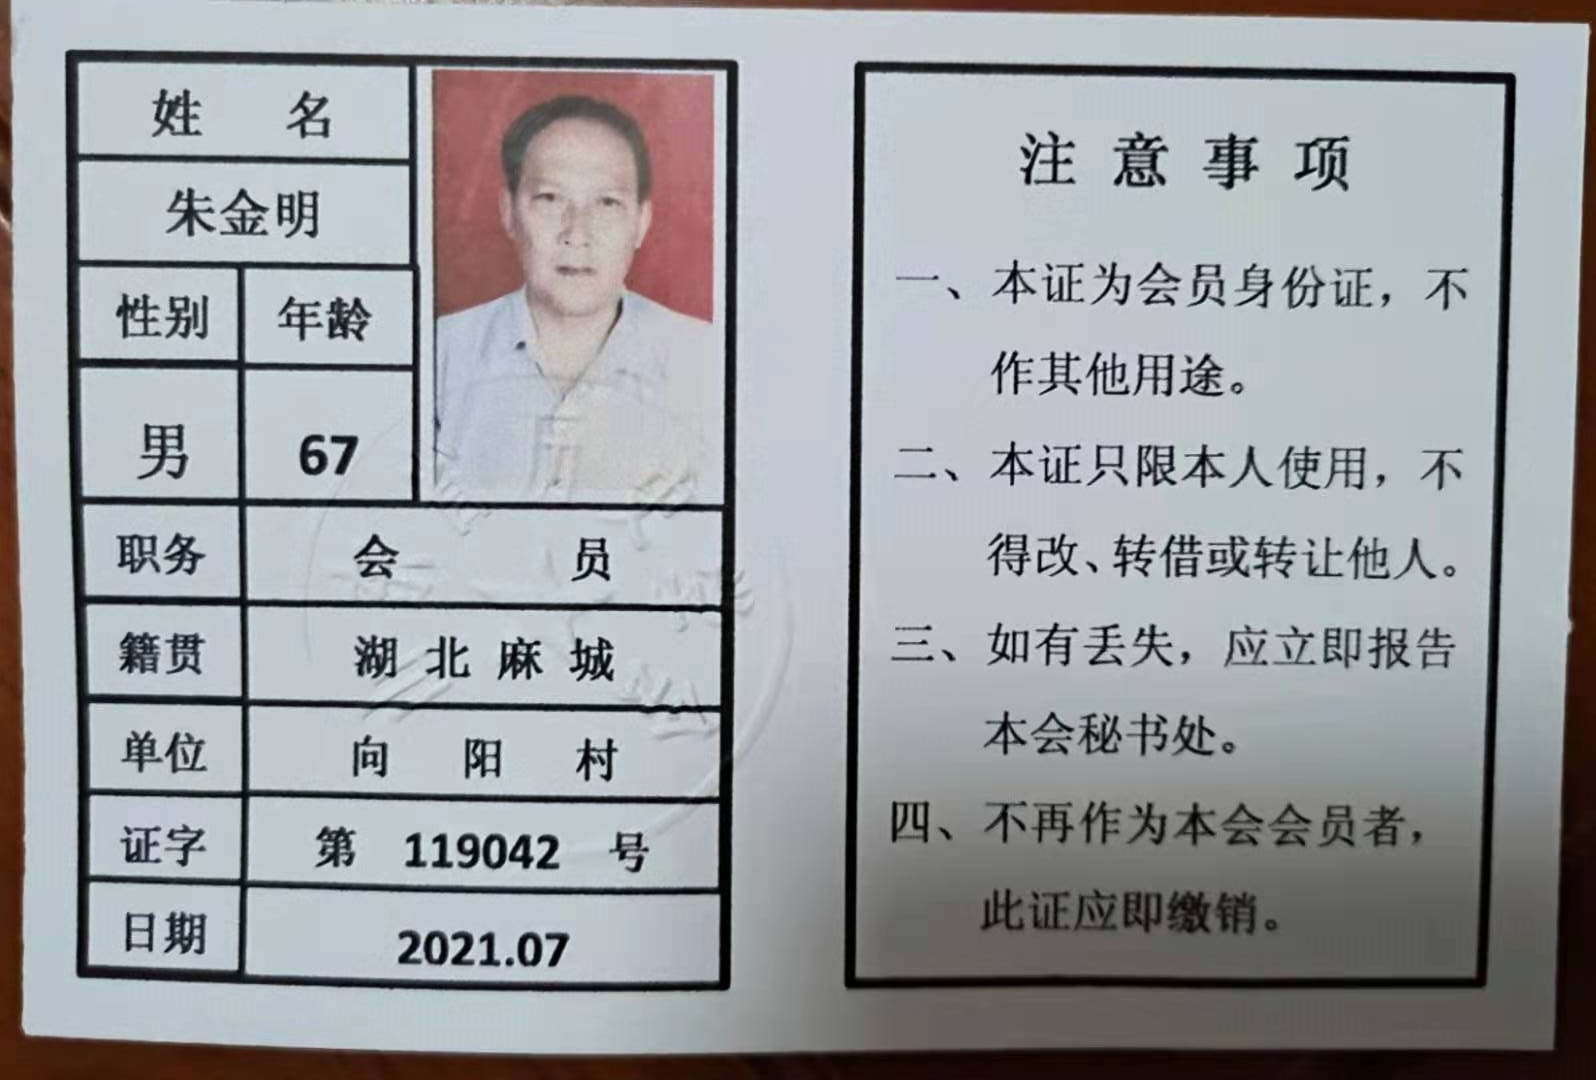 姓 名
朱金明
性别 年龄
男 67
职务 会 员
籍贯 湖北麻城
单位 向阳村
证字 第 119042 号
日期 2021.07
注意事项
一、本证为会员身份证，不
作其他用途。
二、本证只限本人使用，不
得改、转借或转让他人。
三、如有丢失，应立即报告
本会秘书处。
四、不再作为本会会员者，
此证应即缴销。